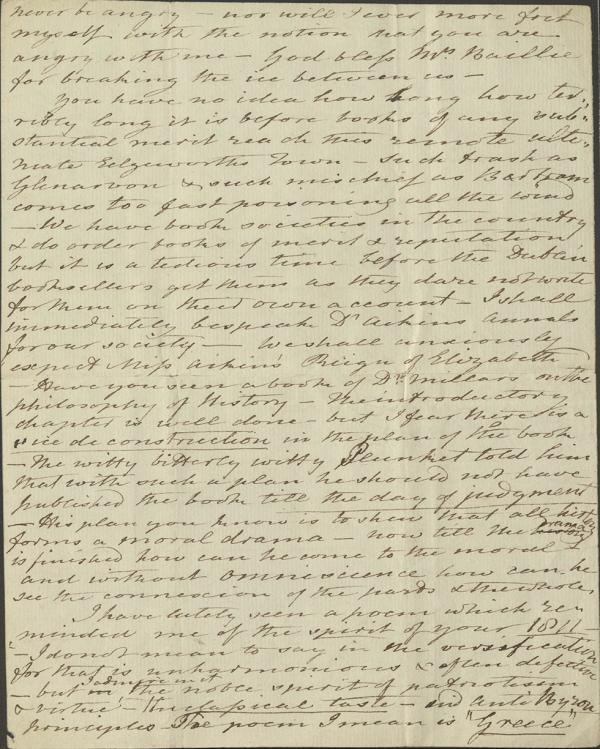 never be angry – nor will I ever more fret
myself with the notion that you are
angry with me – God bless Mrs Baillie
for breaking the ice between us –
You have no idea how long how ter-
ribly long it is before books of any sub-
stantial merit reach this remote ulti-
mate Edgeworths Town – Such trash as
Glenarvon & such mischief as Bertram
comes too fast poisoning all the wind
– We have book societies in the country
& do order books of merit & reputation
but it is a tedious time before the Dublin
booksellers get them as they dare not write
for them on their own account – I shall
immediately bespeak Dr Aikins Annals
for our society – We shall anxiously
expect Miss Aikin's Reign of Elizabeth
– Have you seen a book of Dr Millers on the
philosophy of History – The introductory
chapter is well done – but I fear there is a
vice de construction in the plan of the book
– The witty bitterly witty Plunket told him
that with such a plan he should not have
published the book till the day of judgment
– His plan you know is to shew that all history
forms a moral drama – now till the history drama
is finished how can he come to the moral –
and without omniscience how can he
see the connexion of the parts & the whole
I have lately seen a poem which re-
minded me of the spirit of your 1811 –
– I do not mean to say in the versification
for that is unharmonious & often defective
– but in I admire in it the noble spirit of patriotism
& virtue – Unclassical taste – and anti Byron
principles – The poem I mean is "Greece"